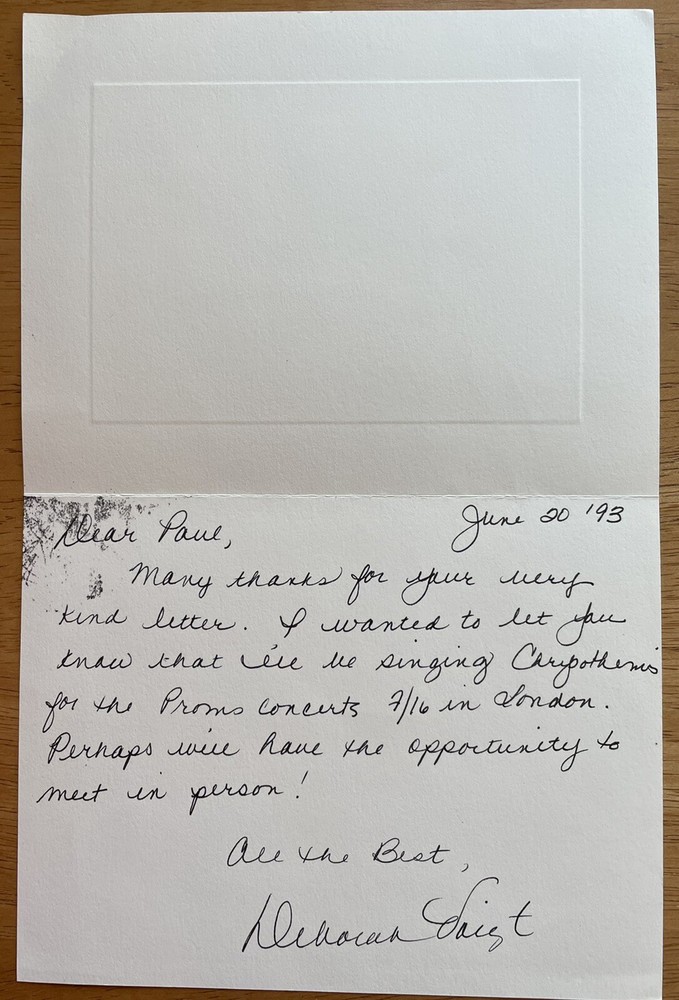 June 20 '93
Dear Paul,
Many thanks for your very
kind letter. I wanted to let you
know that I'll be singing Chrysothemis
for the Proms concerts 7/16 in London.
Perhaps we'll have the opportunity to
meet in person!
All the Best,
Deborah Voigt